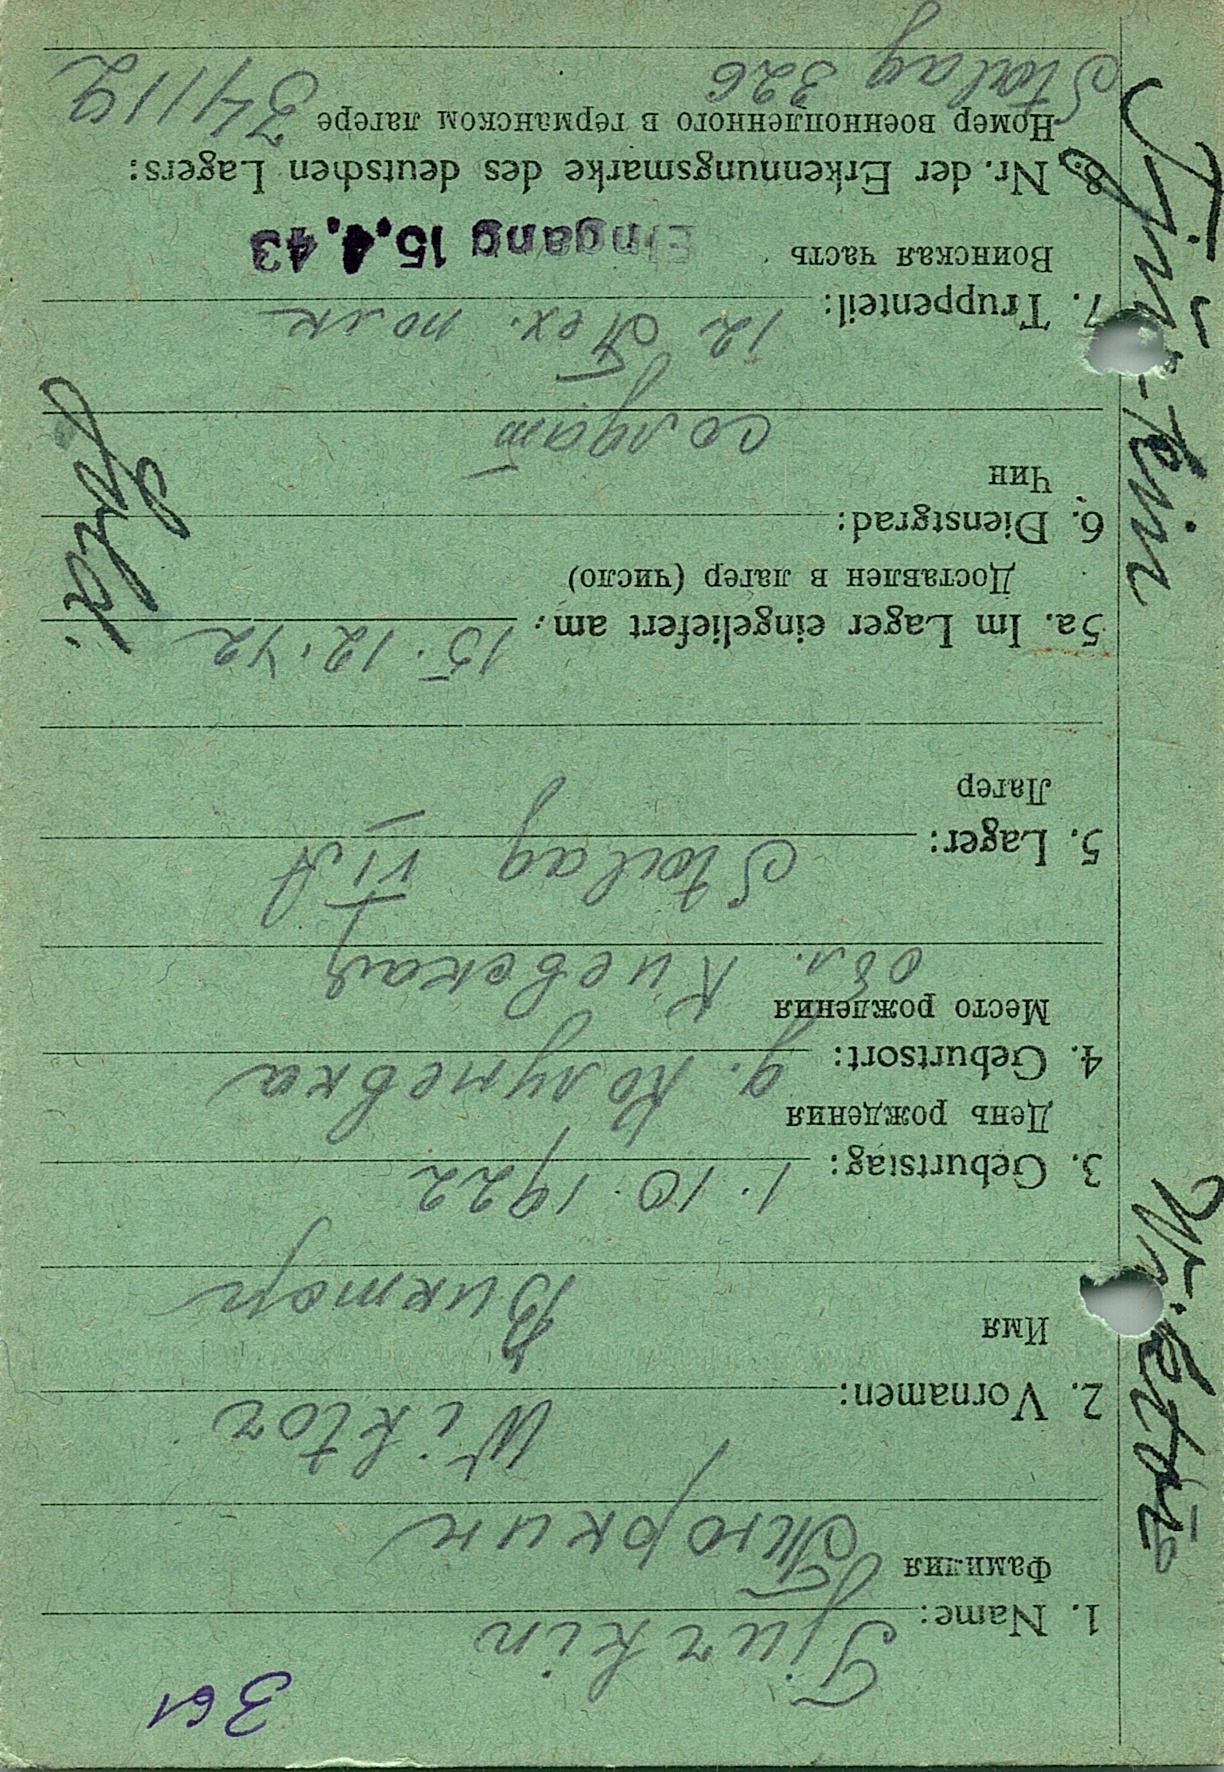 361
1. Name: Tjurkin
Фамилия Тюркин
Wiktor
2. Vornamen:
Имя Виктор
3. Geburtstag: 1. 10. 1922
День рождения
4. Geburtsort: д.
Место рождения обл. Киевская
5. Lager: Stalag VI A
Лагер
5a. Im Lager eingeliefert am: 15. 12. 42
Доставлен в лагер (число)
6. Dienstgrad:
Чин солдат
7. Truppenteil: 12 полк
Воинская часть Eingang 15.4.43
8. Nr. der Erkennungsmarke des deutschen Lagers:
Номер военнопленного в германском лагере
Stalag 326
Wiktor